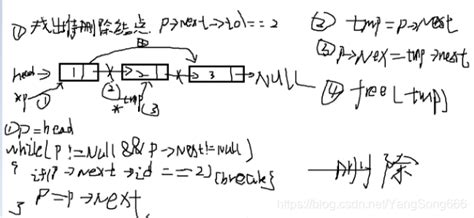 ① 找出待删除结点 p->next->id == 2
② tmp = p->next
③ p->nex = tmp->next
④ free(tmp)
head → 1 2 3 → NULL
*p ① ② *tmp ③
① p = head
while(p != NULL && p->next != null)
{ if(p->next->id == 2) {break;}
p = p->next
}
删除
https://blog.csdn.net/YangSong666